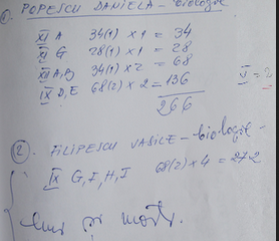 1. POPESCU DANIELA - biologie
XI A 34(1) x 1 = 34
XI G 28(1) x 1 = 28
XII A, D 34(1) x 2 = 68
IX D, E 68(2) x 2 = 136 V = 2
266
2. FILIPESCU VASILE - biologie -
IX G, F, H, I 68(2) x 4 = 272
luni și marți.